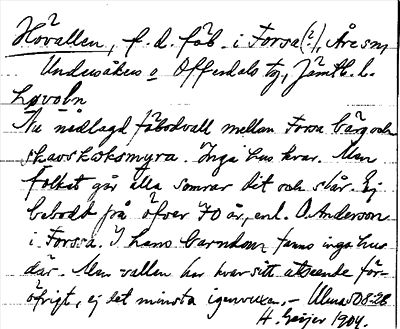 Hövallen, f. d. fäb. i Forsa(?), Åre sn
Undersåkers o Offerdals tg, Jämtl. l.
høvoln
Nu nedlagd fäbodvall mellan Forsa bärg och
skavskoksmyra. Inga hus kvar. Men
folket går alla somrar dit och slår. Ej
bebodt på öfver 70 år, enl. O. Anderson
i Forssa. I hans barndom fanns inga hus
där. Men vallen har kvar sitt utseende för-
öfrigt, ej det minsta igenvuxen. – 08-28
H. Geijer 1904.